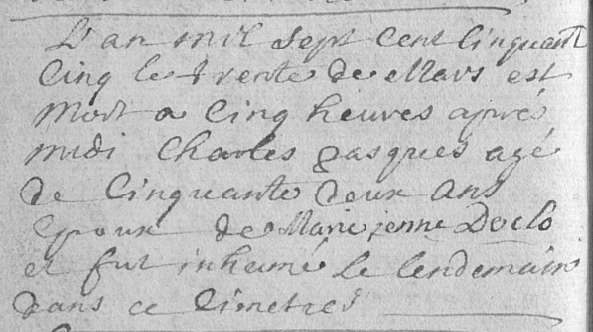 L'an mil sept cent cinquant
cinq le trente de Mars est
mort a cinq heures aprés
midi Charles pasques agé
de cinquante deux ans
epoux de Marie jenne Declo
et fut inhumé le lendemain
dans ce cimetres